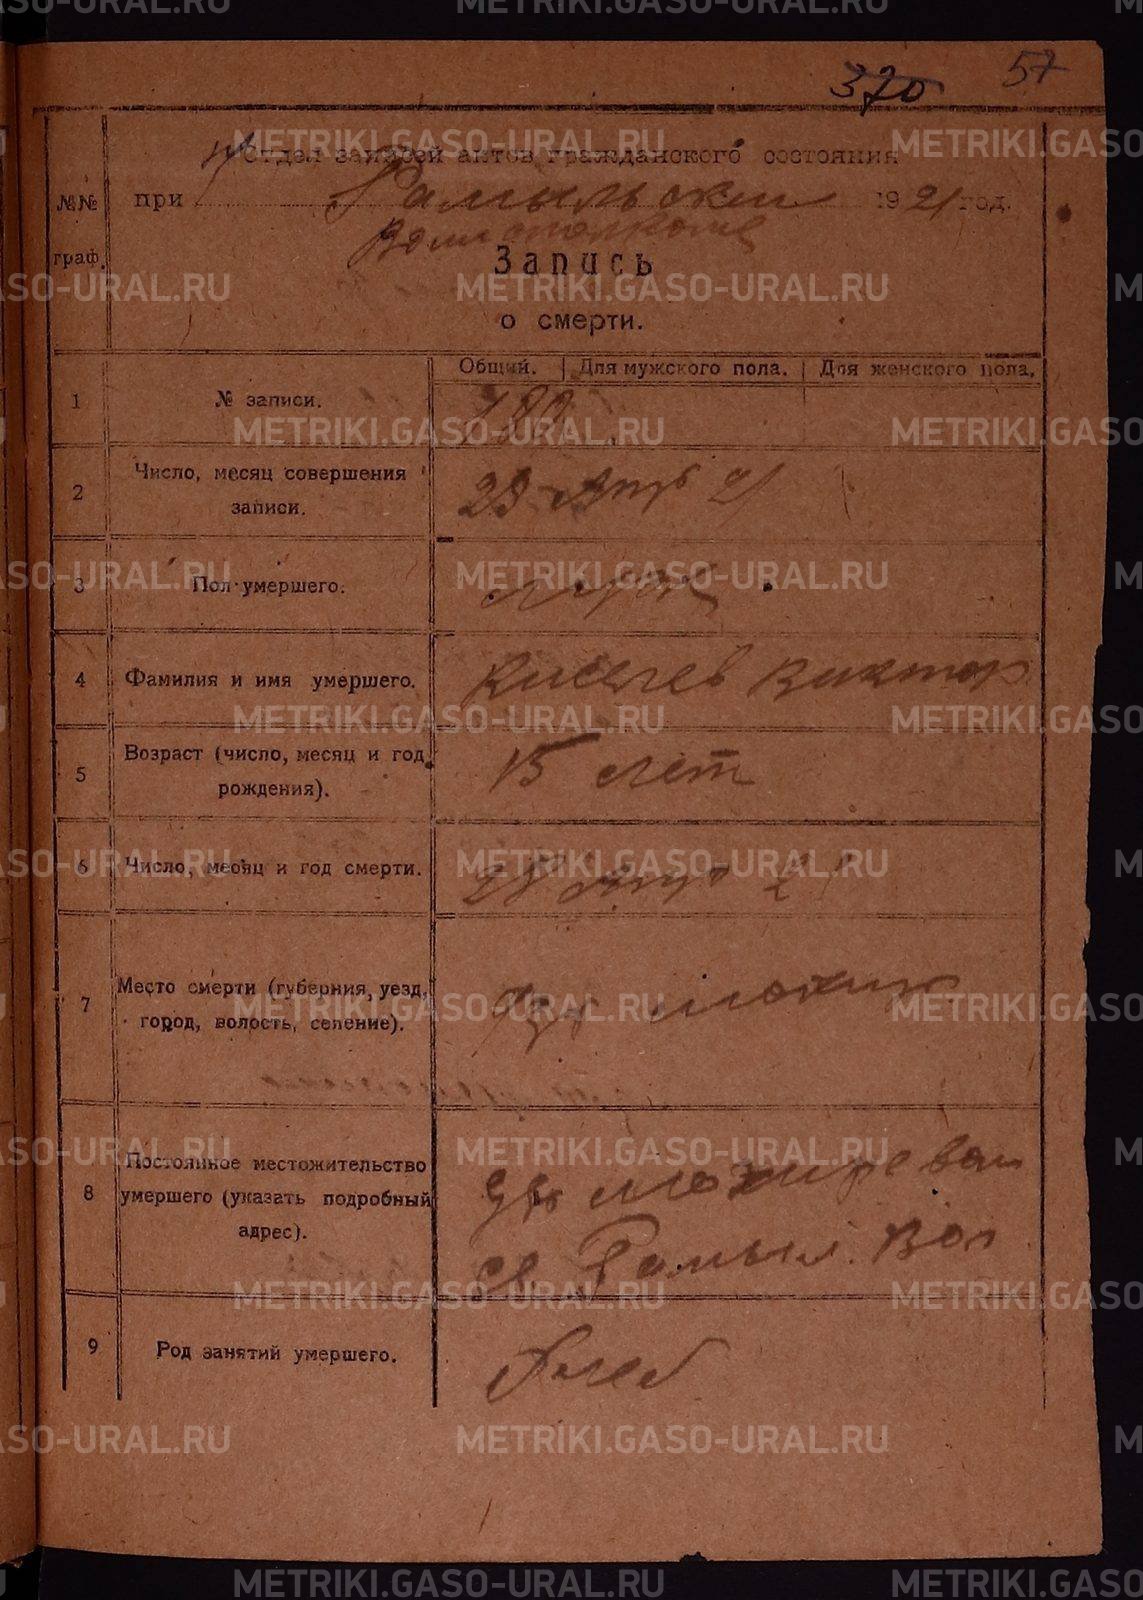 370 57
Отдел записей актов гражданского состояния
№№ при Рамыльском 1921 год.
Волисполкоме
граф. Запись
о смерти.
Общий. Для мужского пола. Для женского пола.
1 № записи.
2 Число, месяц совершения
записи. 21
3 Пол умершего. муж
4 Фамилия и имя умершего. Киселев Виктор
5 Возраст (число, месяц и год
рождения). 15 лет
6 Число, месяц и год смерти. 28 21
7 Место смерти (губерния, уезд,
город, волость, селение).
8 Постоянное местожительство
умершего (указать подробный
адрес). Рамыл. Вол
9 Род занятий умершего. Хлеб
METRIKI.GASO-URAL.RU